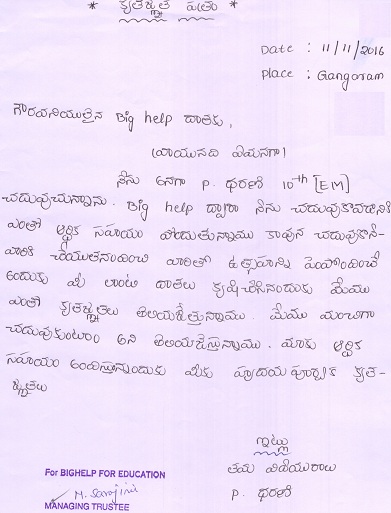 * కృతజ్ఞత పత్రం *
Date : 11/11/2016
Place : Gangaram
గౌరవనీయులైన Big help దాతకు,
(వ్రాయునది ఏమనగా)
నేను అనగా P. ధరణి 10th [EM]
చదువుచున్నాను. Big help ద్వారా నేను చదువుకోవడానికి
ఎంతో ఆర్థిక సహాయం పొందుతున్నాము కావున చదువుకునే-
వారికి చేయూతనందించి వారిలో ఉత్సాహాన్ని పెంపొందించే
అందుకు మీ లాంటి దాతలు కృషిచేసినందుకు మేము
ఎంతో కృతజ్ఞతలు తెలియజేస్తున్నాము. మేము మంచిగా
చదువుకుంటాం అని తెలియజేస్తున్నాము. మాకు ఆర్థిక
సహాయం అందిస్తున్నందుకు మీకు హృదయపూర్వక కృత-
జ్ఞతలు
ఇట్లు
తమ విధేయురాలు
P. ధరణి
For BIGHELP FOR EDUCATION
M. Sarojini
MANAGING TRUSTEE